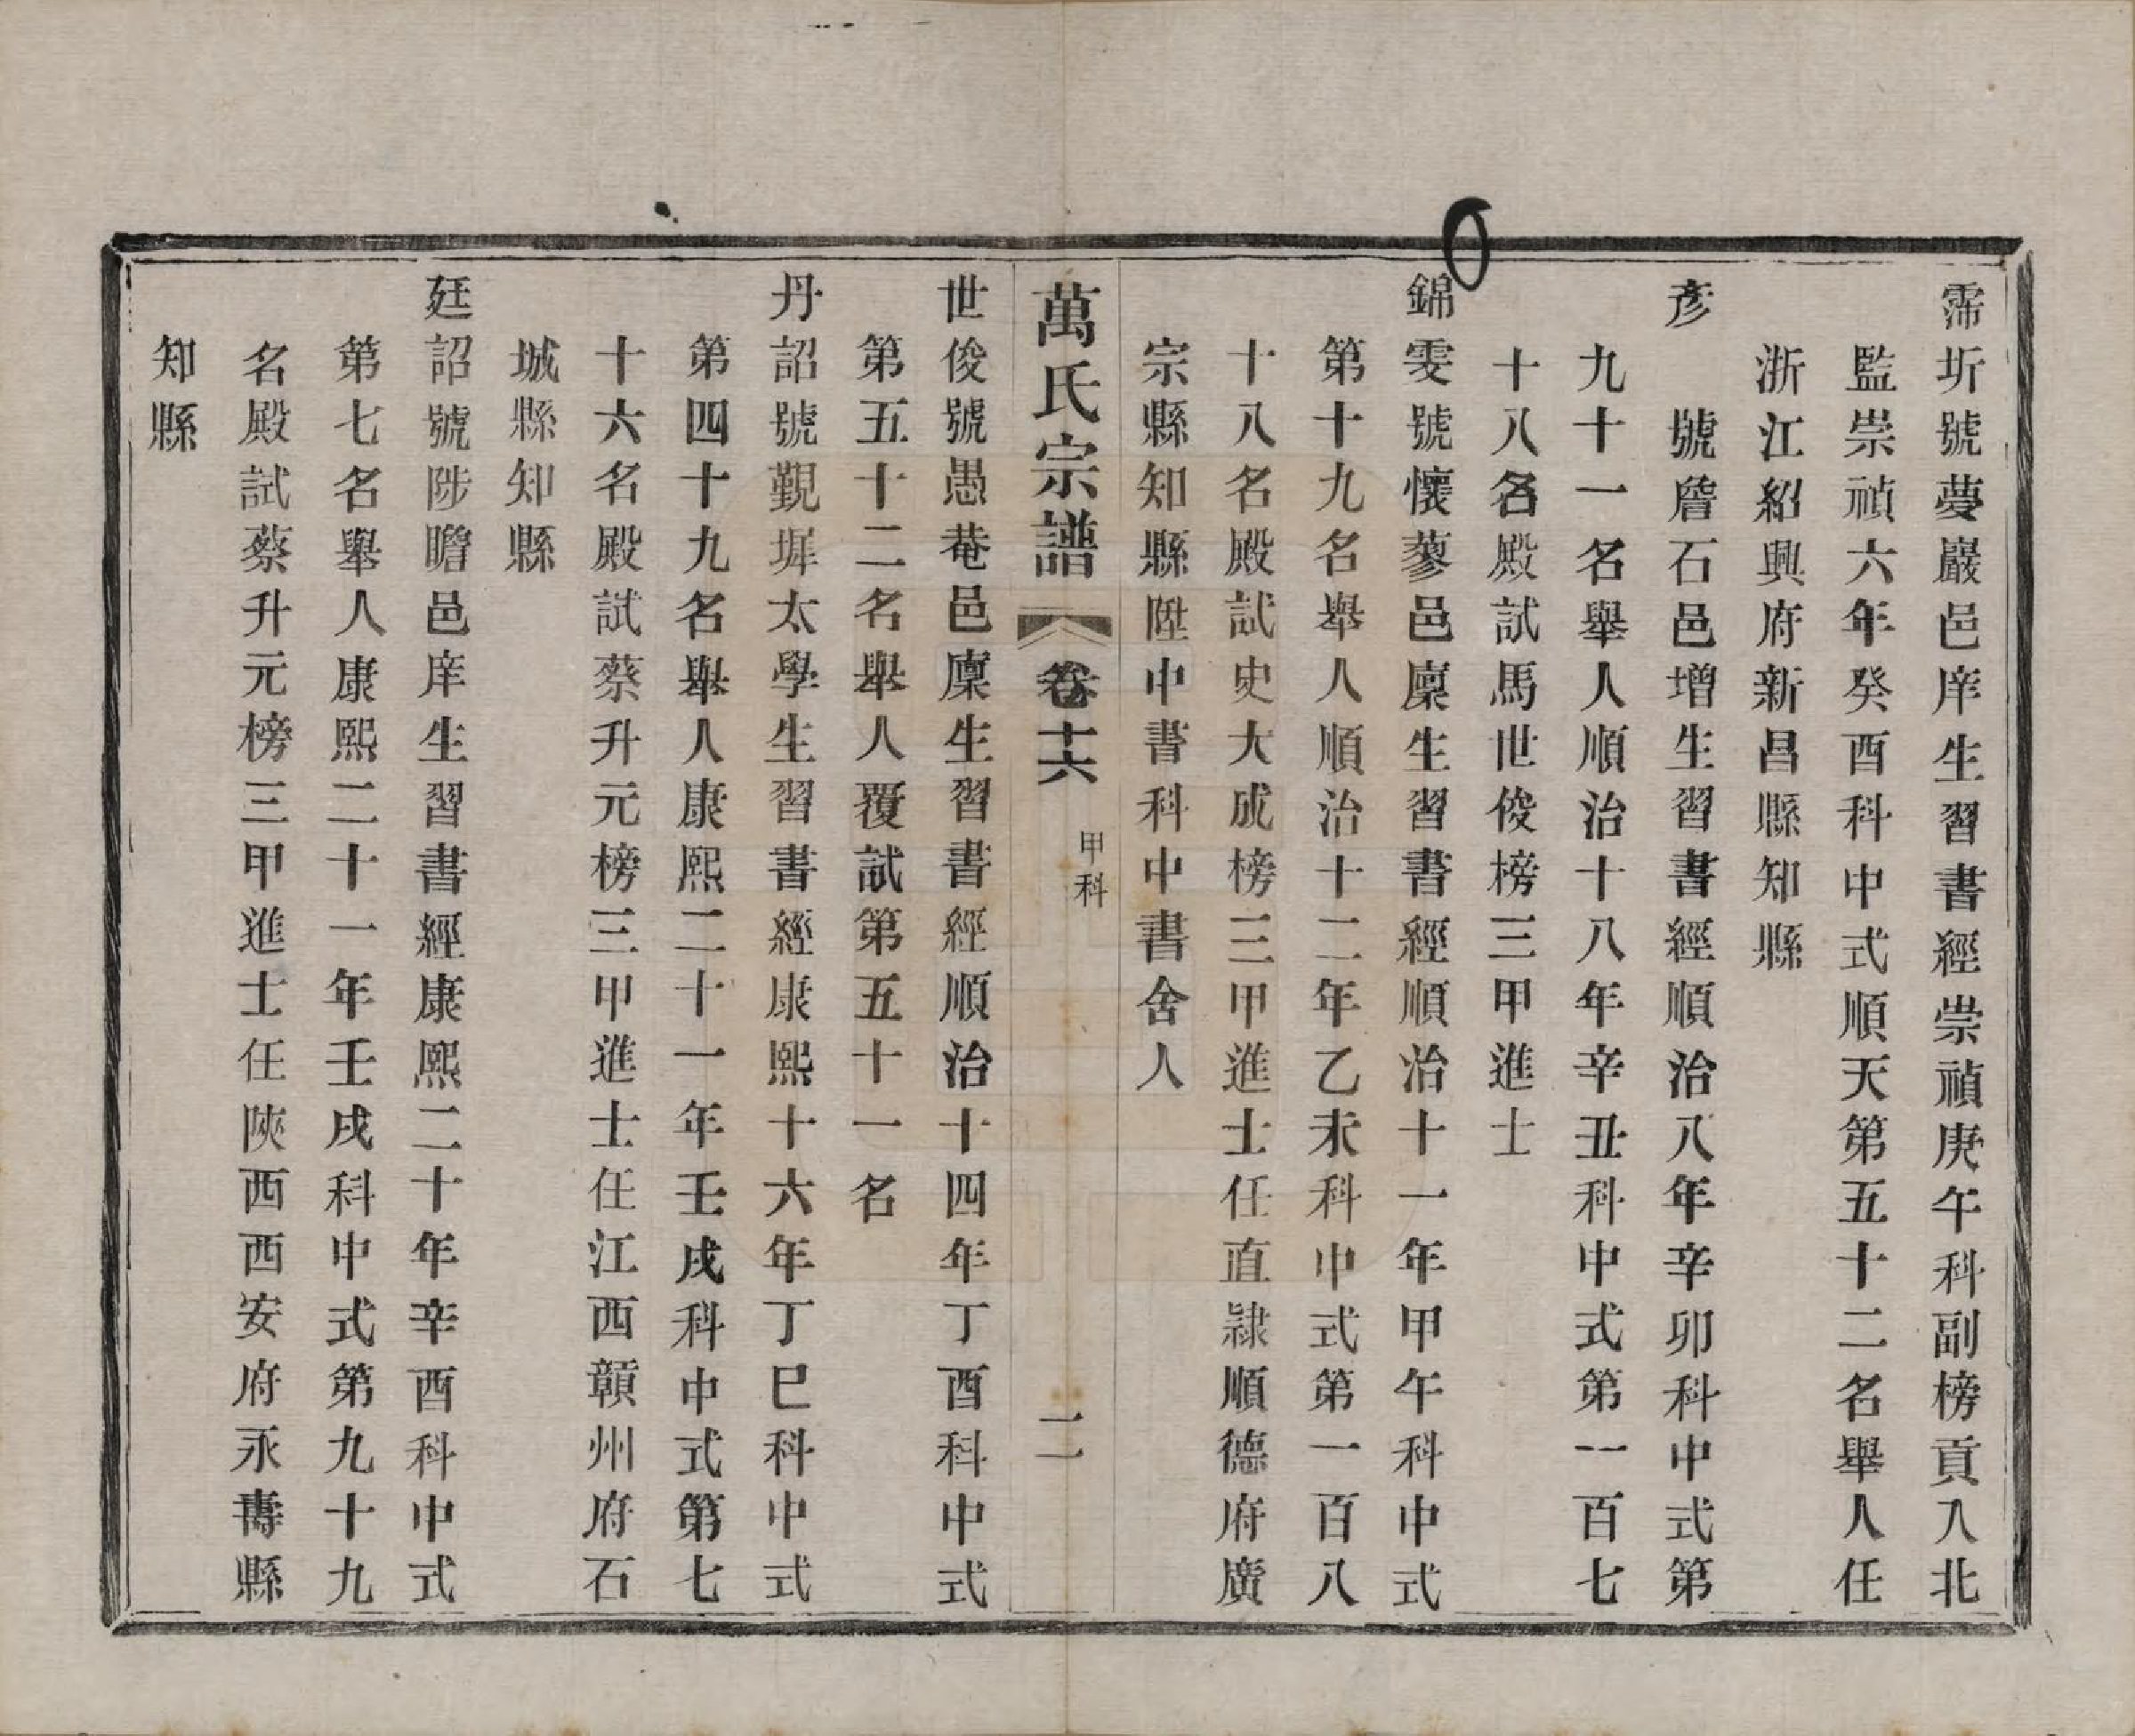 霈圻號夢巖邑庠生習書經崇禎庚午科副榜貢入北
監崇禎六年癸酉科中式順天第五十二名舉人任
浙江紹興府新昌縣知縣
彥　號詹石邑增生習書經順治八年辛卯科中式第
九十一名舉人順治十八年辛丑科中式第一百七
十八名殿試馬世俊榜三甲進士
錦雯號懷蓼邑廩生習書經順治十一年甲午科中式
第十九名舉人順治十二年乙未科中式第一百八
十八名殿試史大成榜三甲進士任直隸順德府廣
宗縣知縣陞中書科中書舍人
萬氏宗譜　卷十六　甲科　二
世俊號愚菴邑廩生習書經順治十四年丁酉科中式
第五十二名舉人覆試第五十一名
丹詔號覲墀太學生習書經康熙十六年丁巳科中式
第四十九名舉人康熙二十一年壬戌科中式第七
十六名殿試蔡升元榜三甲進士任江西贛州府石
城縣知縣
廷詔號陟瞻邑庠生習書經康熙二十年辛酉科中式
第七名舉人康熙二十一年壬戌科中式第九十九
名殿試蔡升元榜三甲進士任陝西西安府永壽縣
知縣